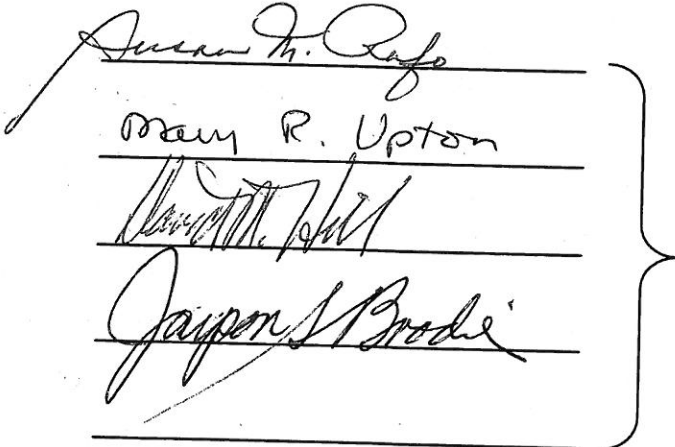 Susan M. Rafo
Mary R. Upton
David M. Hill
S Brodie